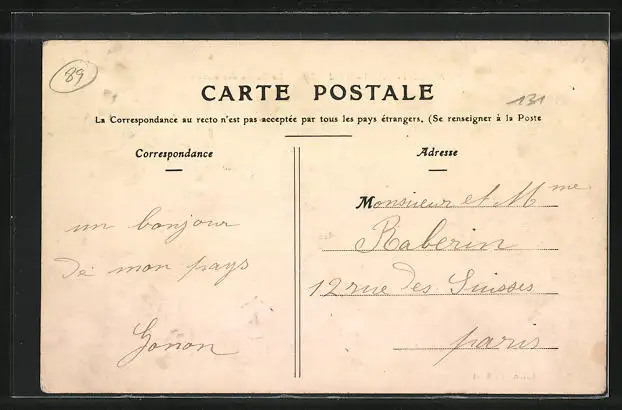 89
CARTE POSTALE
131
La Correspondance au recto n'est pas acceptée par tous les pays étrangers. (Se renseigner à la Poste
Correspondance
un bonjour
de mon pays
Gonon
Adresse
Monsieur et Mme
Raberin
12 rue des Suisses
paris